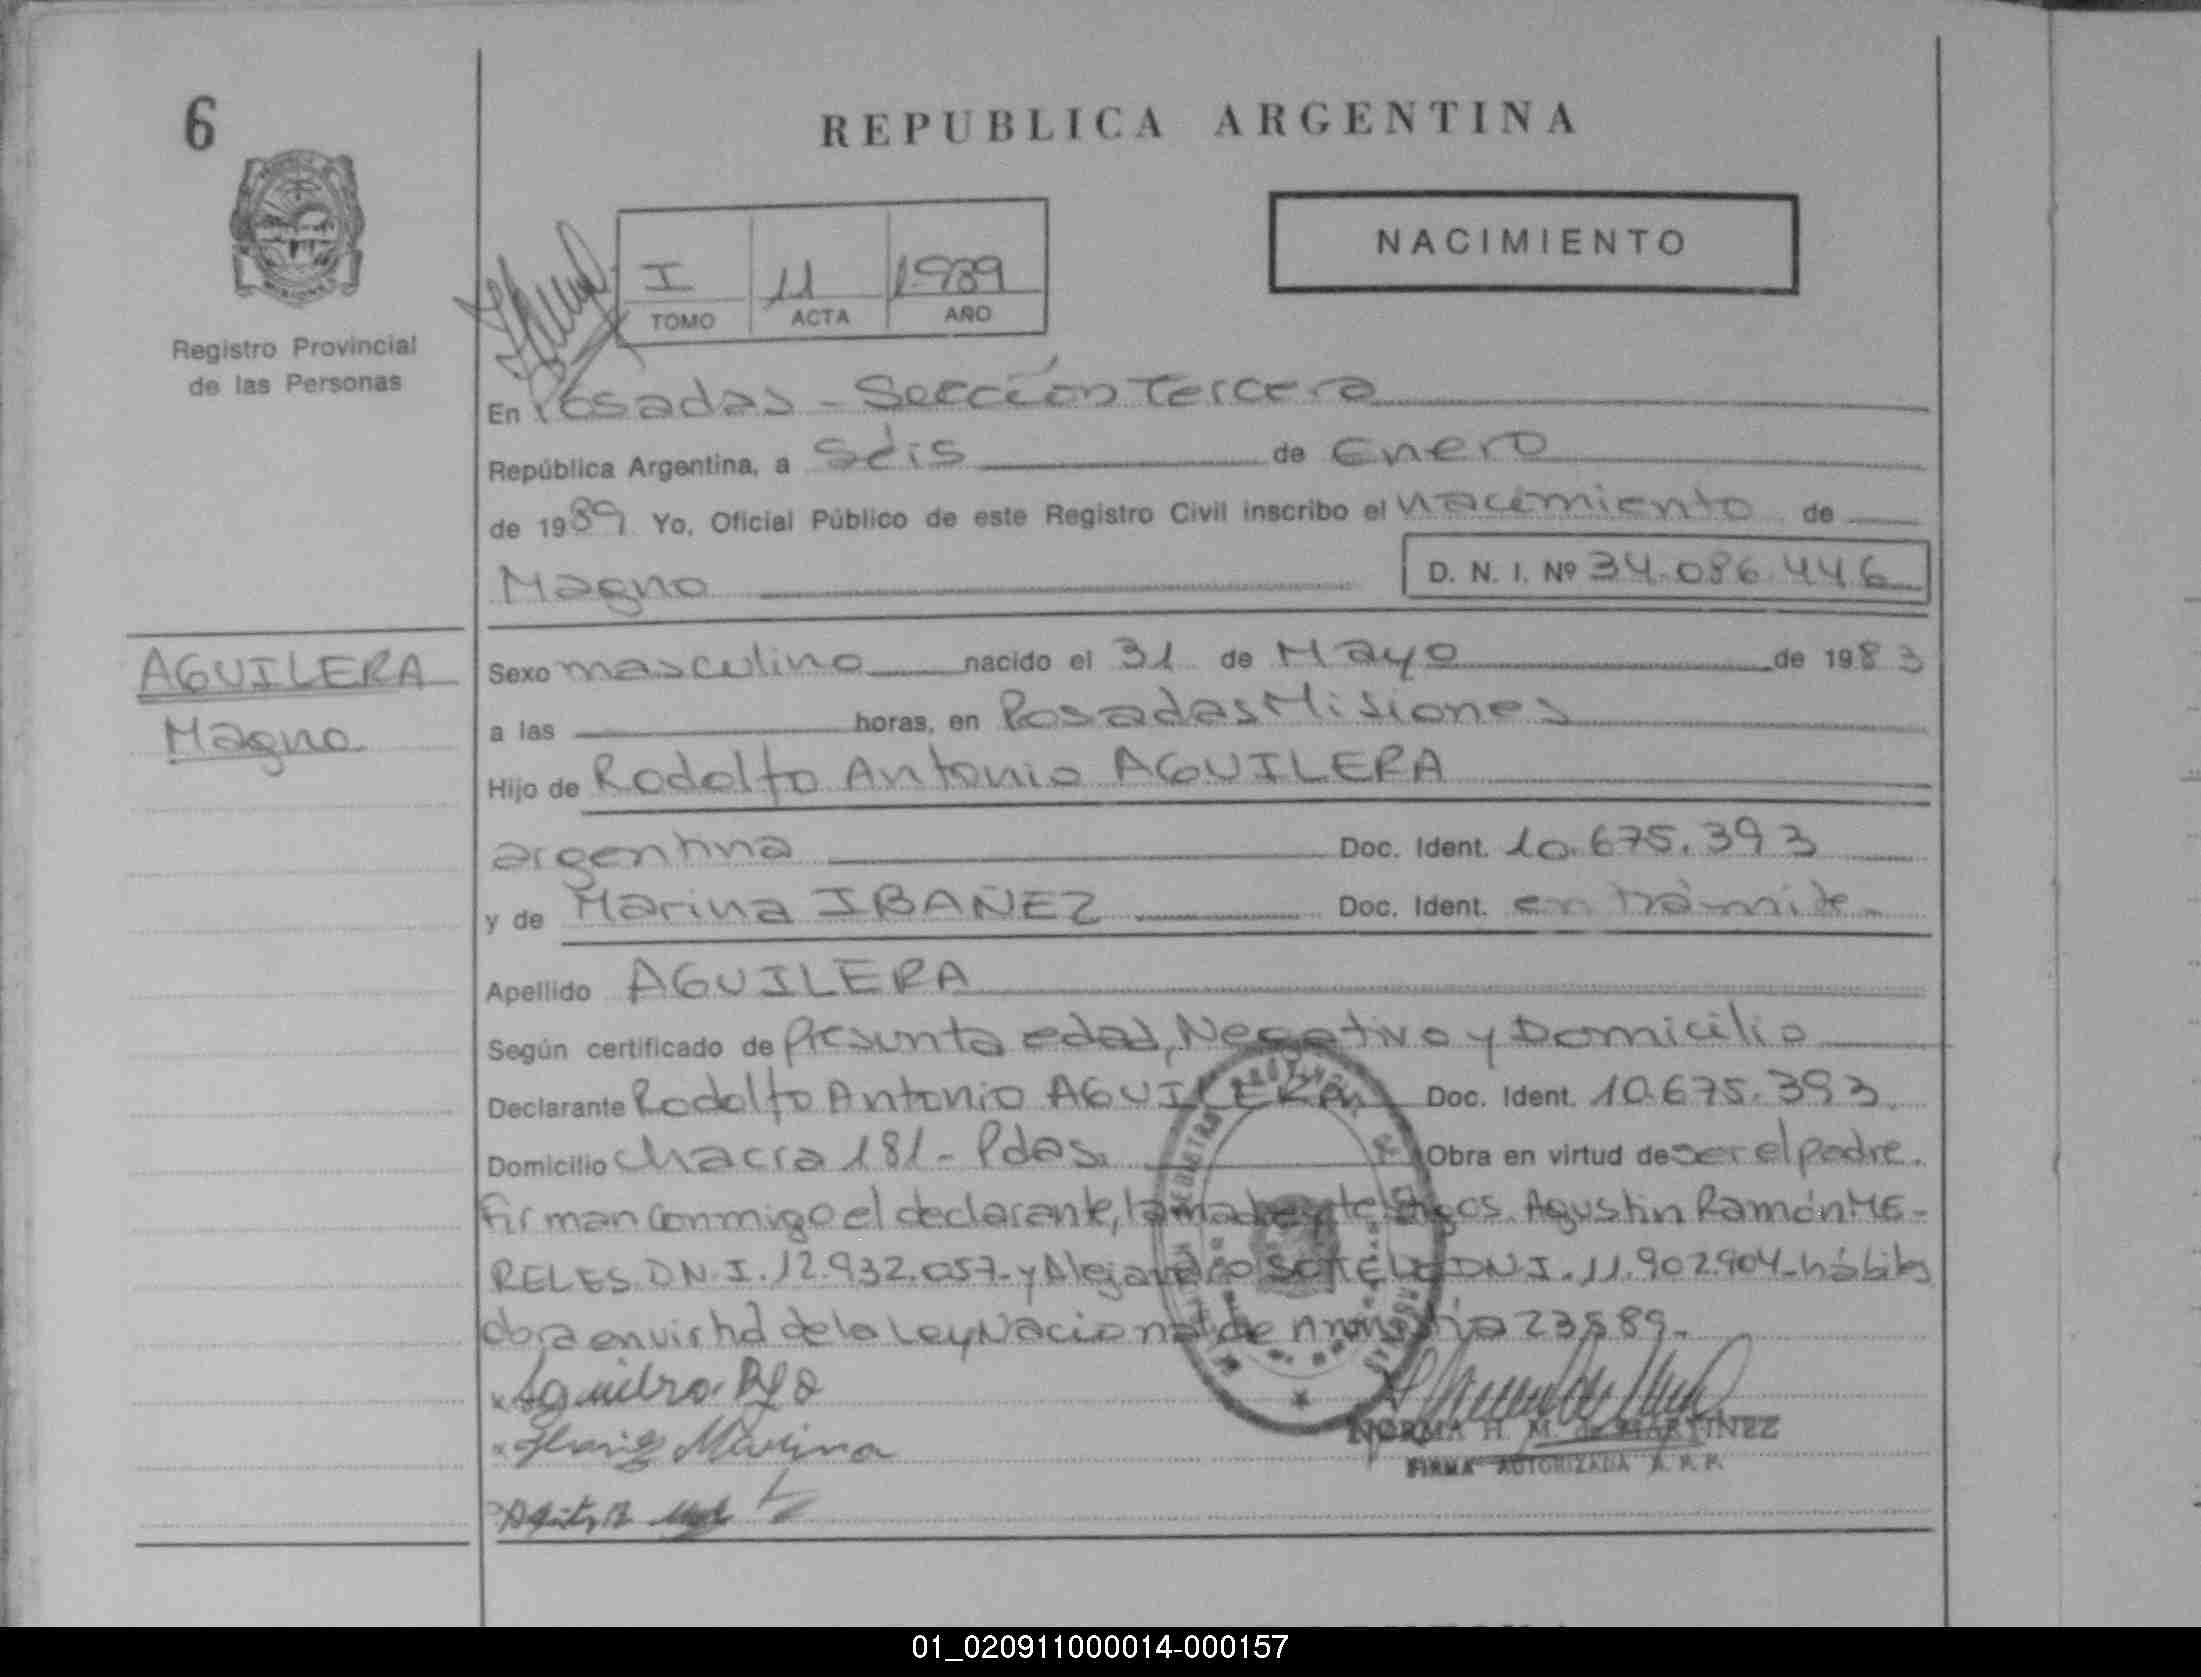 6
REPUBLICA ARGENTINA
NACIMIENTO
I 11 1989
TOMO ACTA AÑO
Registro Provincial
de las Personas
En Posadas - Sección Tercera
República Argentina, a Seis de Enero
de 1989 Yo, Oficial Público de este Registro Civil inscribo el nacimiento de
Magno D. N. I. Nº 34.086.446
AGUILERA
Magno
Sexo masculino nacido el 31 de Mayo de 1983
a las horas, en Posadas Misiones
Hijo de Rodolfo Antonio AGUILERA
argentina Doc. Ident. 10.675.393
y de Marina IBAÑEZ Doc. Ident. en trámite.
Apellido AGUILERA
Según certificado de Presunta edad, Negativo y Domicilio
Declarante Rodolfo Antonio AGUILERA Doc. Ident. 10.675.393
Domicilio Chacra 181 - Pdas. Obra en virtud de ser el padre.
Firman conmigo el declarante, la madre y testigos Agustin Ramón ME-
RELES D.N.I. 12.932.057 - y Alejandro SOTELO D.N.I. 11.902.904 - hábiles
obra en virtud de la Ley Nacional de Amnistía 23589.
Marina
NORMA H. M. de MARTINEZ
FIRMA AUTORIZADA
01_020911000014-000157